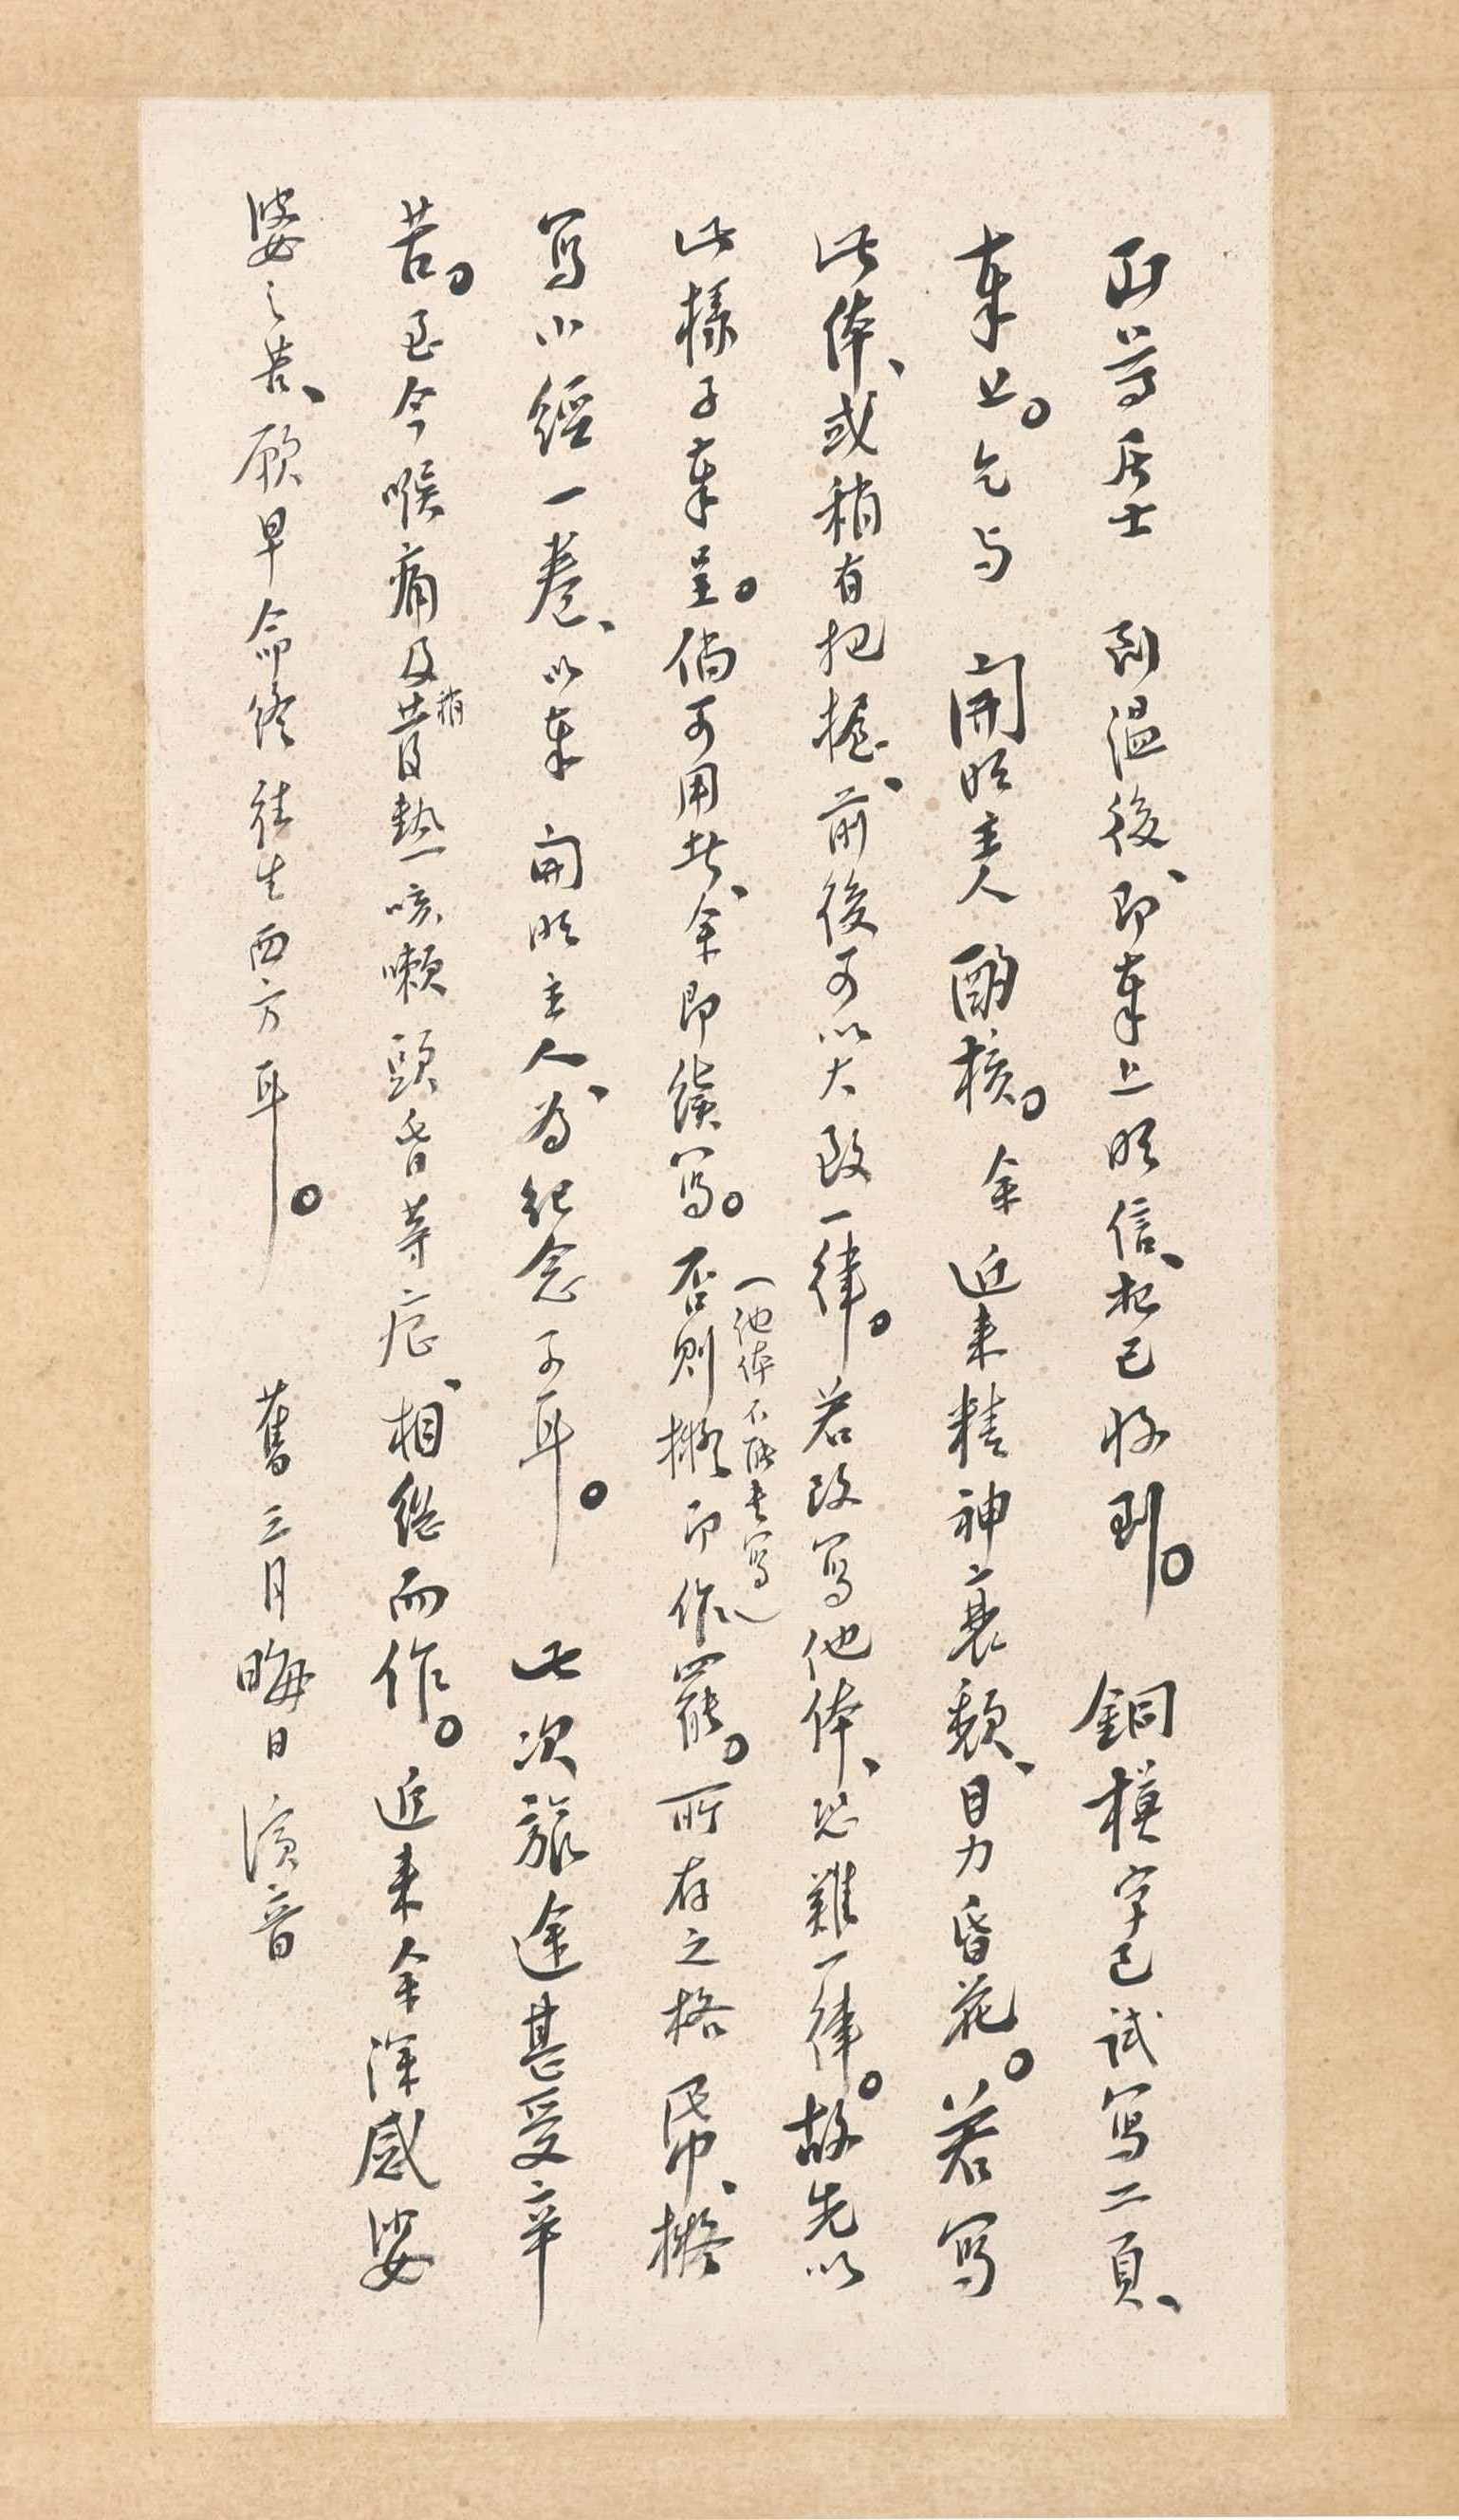 丏尊居士 到溫後、即奉上明信、想已收到。 銅模字已試寫二頁、
奉上。乞与 開明主人 酌核。余近來精神衰頹、目力昏花。若寫
此体、或稍有把握、前後可以大致一律。若改寫他体、恐難一律。故先以
此樣子奉呈。倘可用此、余即續寫。否則擬即作罷。所存之格紙、擬
（他体不能書寫）
寫小經一卷、以奉 開明主人、為紀念可耳。 此次旅途甚受辛
苦。至今喉痛及稍發熱咳嗽頭昏等症、相繼而作。近來余深感娑
婆之苦、願早命終往生西方耳。 舊三月晦日 演音